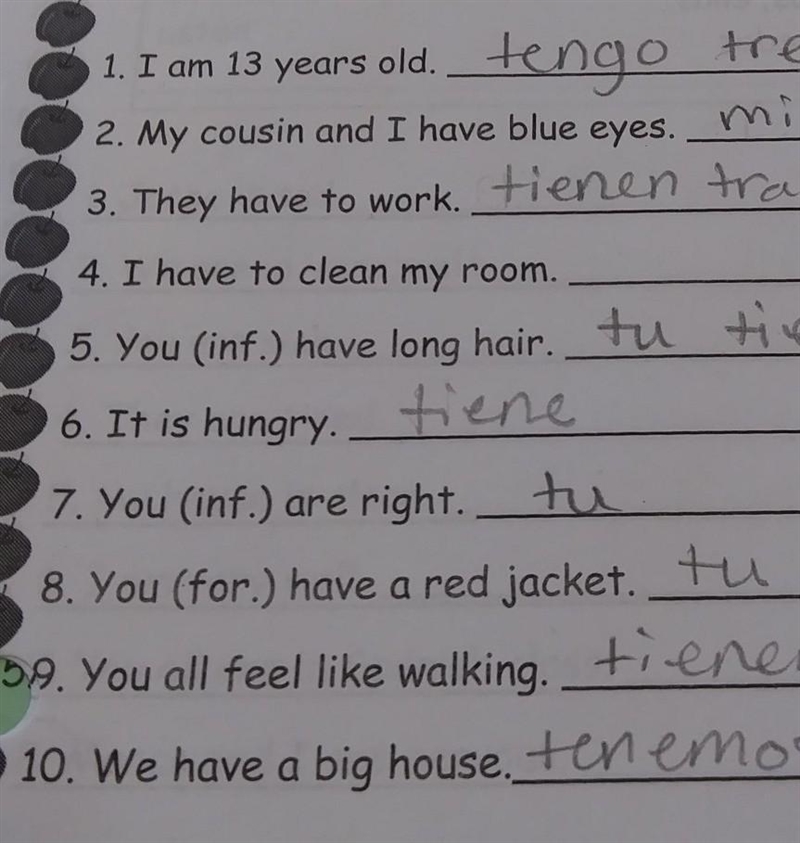 1. I am 13 years old. tengo tre
2. My cousin and I have blue eyes. mi
3. They have to work. tienen tra
4. I have to clean my room.
5. You (inf.) have long hair. tu tie
6. It is hungry. tiene
7. You (inf.) are right. tu
8. You (for.) have a red jacket. tu
9. You all feel like walking. tienen
10. We have a big house. tenemos